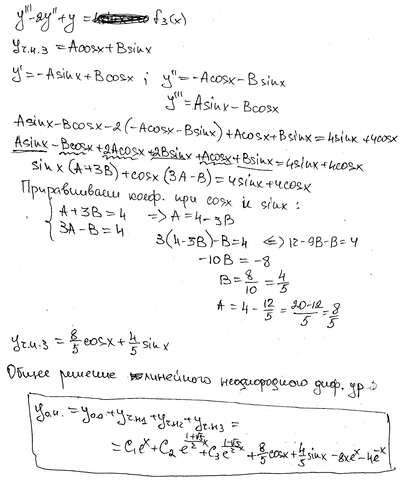 y''' - 2y'' + y = f₃(x)
yч.н.3 = Acosx + Bsinx
y' = -Asinx + Bcosx ; y'' = -Acosx - Bsinx
y''' = Asinx - Bcosx
Asinx - Bcosx - 2(-Acosx - Bsinx) + Acosx + Bsinx = 4sinx + 4cosx
Asinx - Bcosx + 2Acosx + 2Bsinx + Acosx + Bsinx = 4sinx + 4cosx
sinx(A+3B) + cosx(3A-B) = 4sinx + 4cosx
Приравниваем коэф. при cosx и sinx :
{ A + 3B = 4 => A = 4 - 3B
3A - B = 4 3(4-3B) - B = 4 <=> 12 - 9B - B = 4
-10B = -8
B = 8/10 = 4/5
A = 4 - 12/5 = (20-12)/5 = 8/5
yч.н.3 = 8/5 cosx + 4/5 sinx
Общее решение линейного неоднородного диф. ур :
yо.н. = yо.о + yч.н1 + yч.н2 + yч.н3 =
= C₁e^x + C₂e^((1+√5)/2 x) + C₃e^((1-√5)/2 x) + 8/5 cosx + 4/5 sinx - 8xe^x - 4e^-x